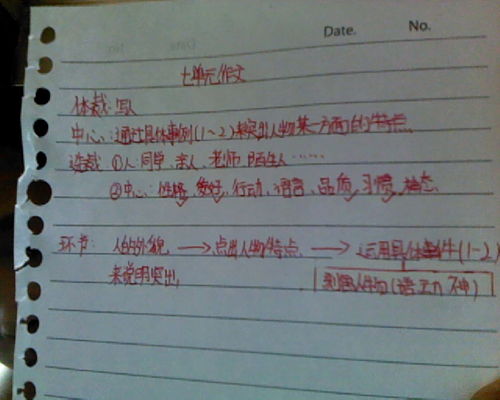 Date. No.
七单元作文
体裁:写人
中心:通过具体事例(1~2)来突出人物某一方面的特点.
选裁 ①人:同学、亲人、老师、陌生人……
②中心:性格、爱好、行动、语言、品质、习惯、神态.
环节: 人的外貌 → 点出人物特点 → 运用具体事件(1~2)
来说明突出, 刻画人物(语 动 神)